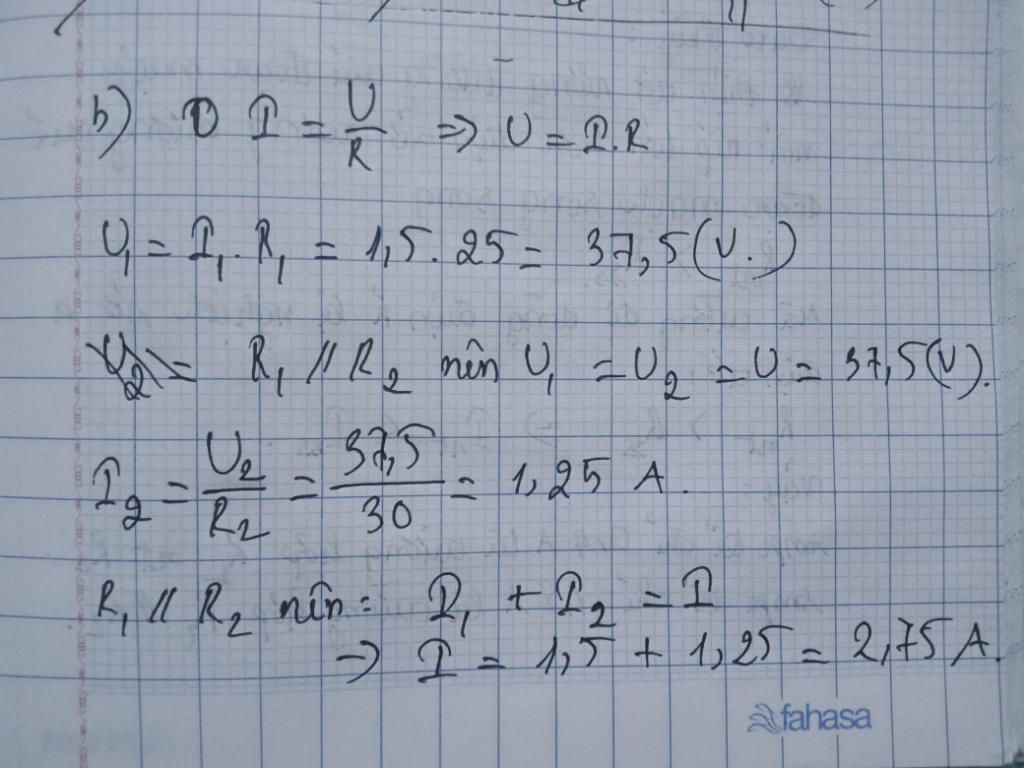 b) I = U/R => U = I.R
U₁ = I₁. R₁ = 1,5. 25 = 37,5 (V.)
U₂ = R₁ // R₂ nên U₁ = U₂ = U = 37,5 (V).
I₂ = U₂/R₂ = 37,5/30 = 1,25 A.
R₁ // R₂ nên: I₁ + I₂ = I
→ I = 1,5 + 1,25 = 2,75 A.
fahasa